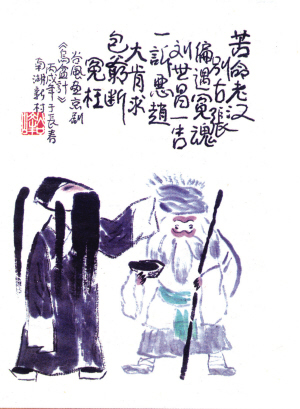 苦命老汉
别古张
偏遇冤魂
刘世昌一告
一诉悲赵
大肯求
包爺断
冤枉
谷风画京剧
《乌盆计》
丙戌年于长寿
南湖新村